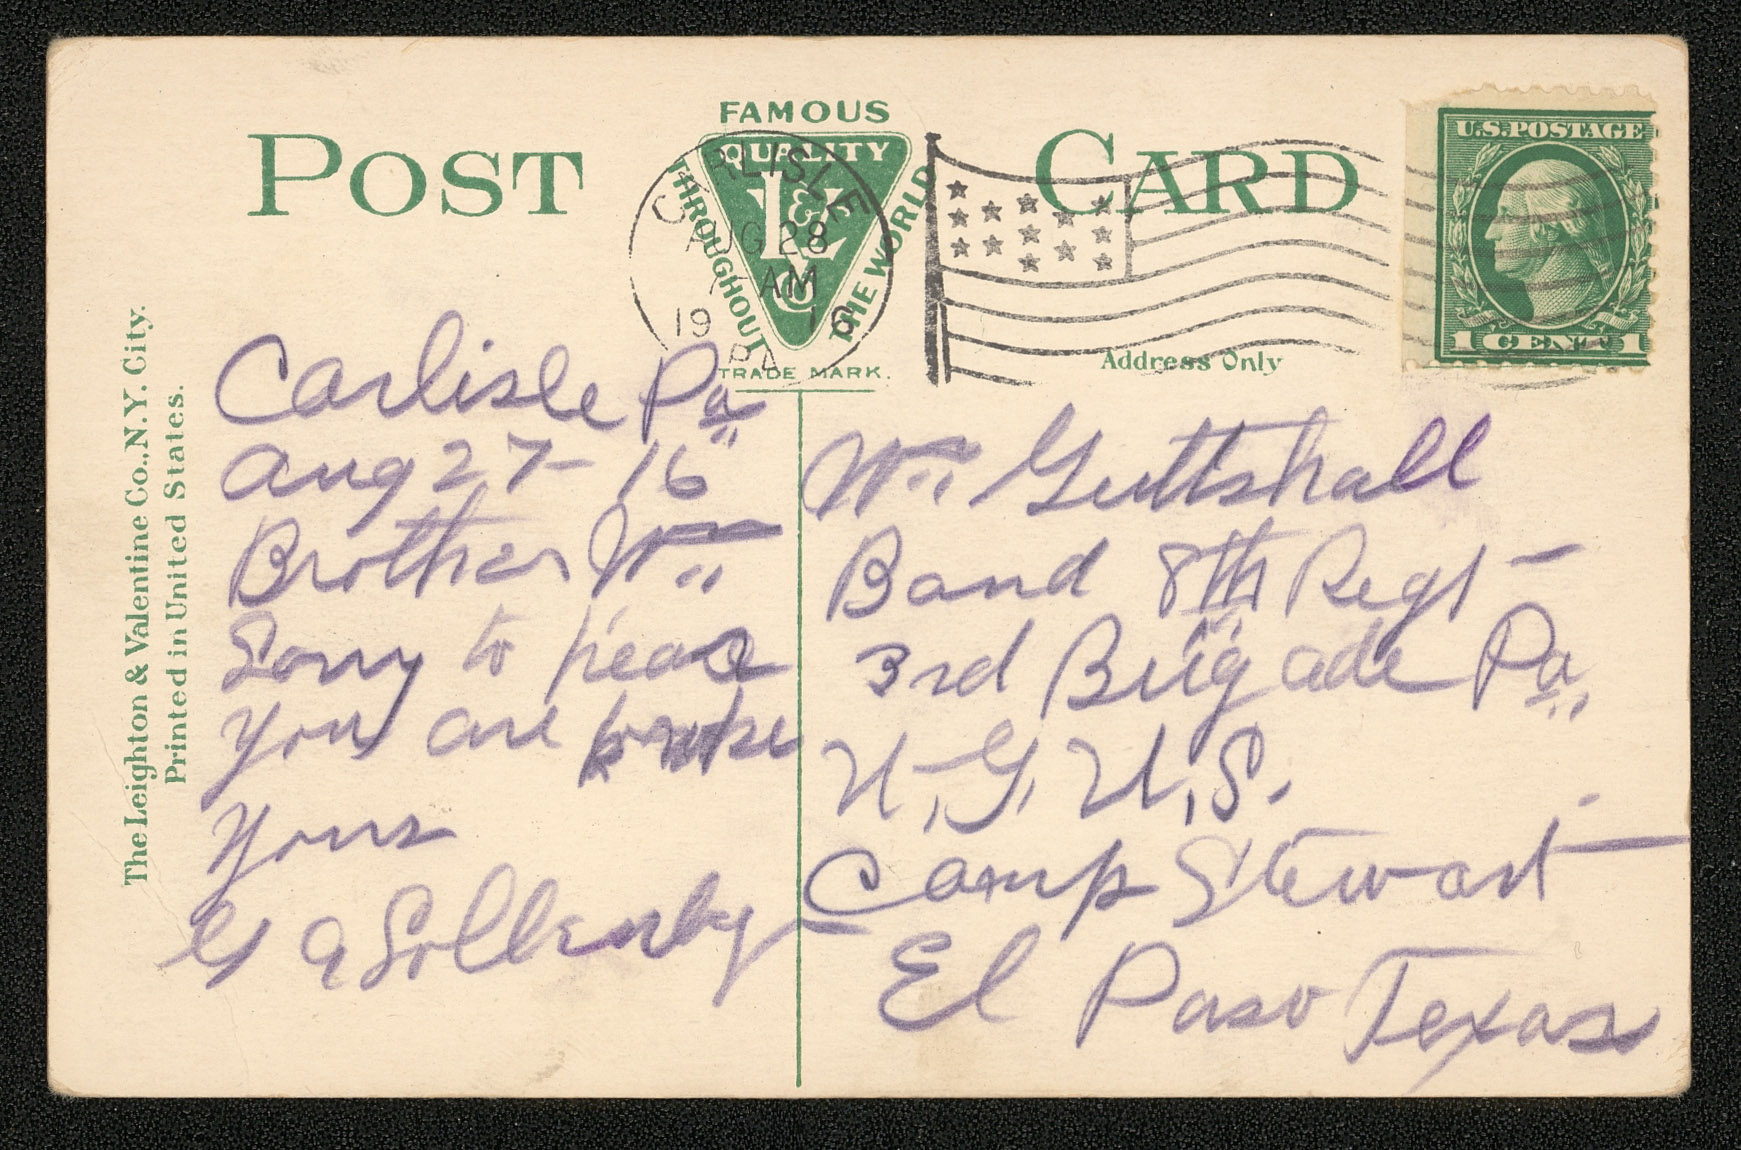 POST CARD
FAMOUS
QUALITY
THROUGHOUT
THE WORLD
L & V Co
TRADE MARK.
CARLISLE
AUG 28
7 AM
19 16
PA
U.S. POSTAGE
1 CENT 1
Address Only
The Leighton & Valentine Co., N.Y. City.
Printed in United States.
Carlisle Pa
Aug 27 - 16
Brother Wm
Sorry to hear
you are broke
Yours
G A Sollenberger
Wm Guttshall
Band 8th Regt
3rd Brigade Pa
N.G.U.S.
Camp Stewart
El Paso Texas